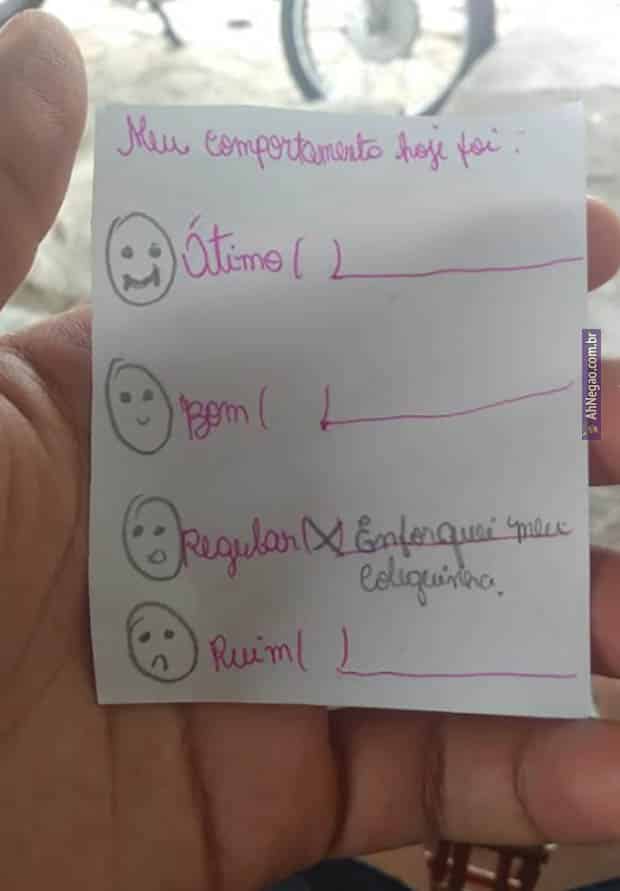 Meu comportamento hoje foi:
Ótimo ( )
Bom ( )
Regular (X) Enforquei meu
coleguinha.
Ruim ( )
AhNegao.com.br